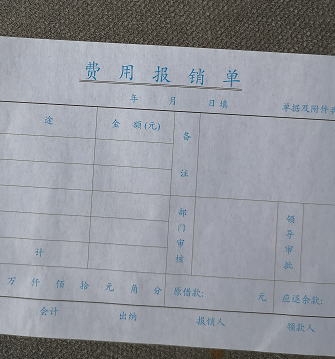 费用报销单
年 月 日填 单据及附件共
途 金额(元) 备注
部门审核 领导审批
计
万 仟 佰 拾 元 角 分 原借款: 元 应退余款:
会计 出纳 报销人 领款人